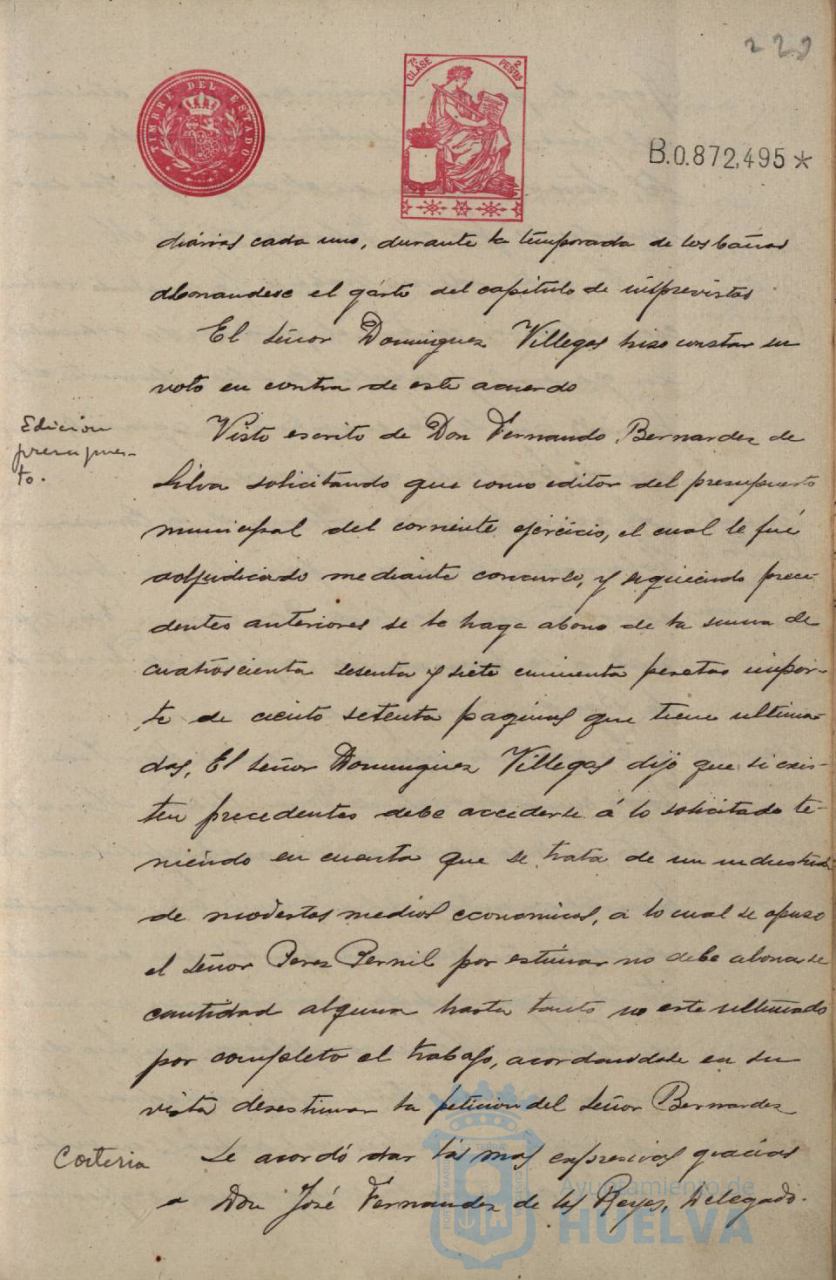 229
TIMBRE DEL ESTADO
7ª CLASE
2 PESTAS
B.0.872,495*
diárias cada uno, durante la temporada de los baños
abonandose el gásto del capitulo de imprevistos
El señor Dominguez Villegas hizo constar su
voto en contra de este acuerdo
Edición
presupues-
to.
Visto escrito de Don Fernando Bernardez de
Silva solicitando que como editor del presupuesto
municipal del corriente ejercicio, el cual le fué
adjudicado mediante concurso, y siguiendo prece-
dentes anteriores se le haga abono de la suma de
cuatroscienta sesenta y siete cincuenta pesetas impor-
te de ciento setenta paginas que tiene ultima-
das, El señor Dominguez Villegas dijo que si exis-
ten precedentes debe accederse á lo solicitado te-
niendo en cuenta que se trata de un industrial
de modestos medios economicos, a lo cual se opuso
el señor Perez Pernil por estimar no debe abonarse
cantidad alguna hasta tanto no este ultimado
por completo el trabajo, acordandose en su
vista desestimar la peticion del señor Bernardez
Corteria
Se acordó dar las mas expresivas gracias
a Don José Fernandez de los Reyes, Delegado.
Ayuntamiento de
HUELVA